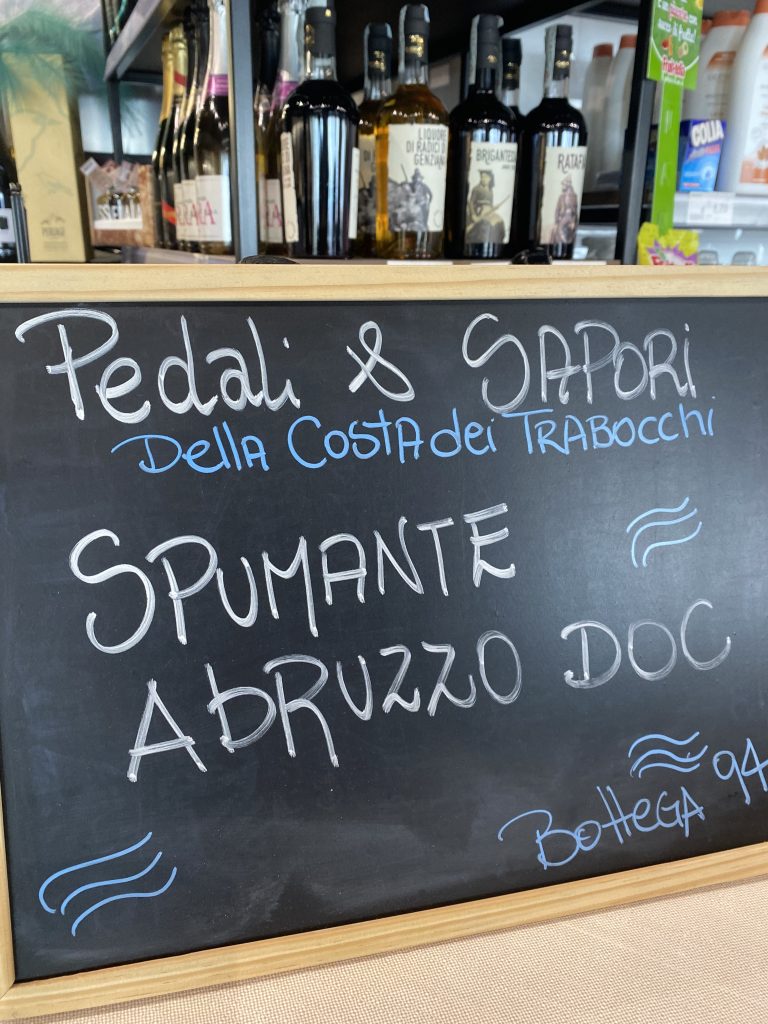 LIQUORE
DI RADICI DI
GENZIANA
BRIGANTESS
RATAFI
COLIA
Pedali & SAPORI
Della Costa dei TRABOCCHI
SPUMANTE
AbRUZZO DOC
BotteGA 94